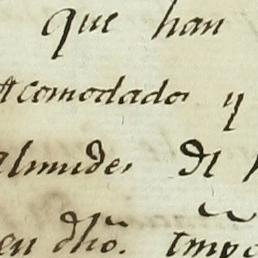 que han
Acomodados y
Almudes de
en dho. Imp